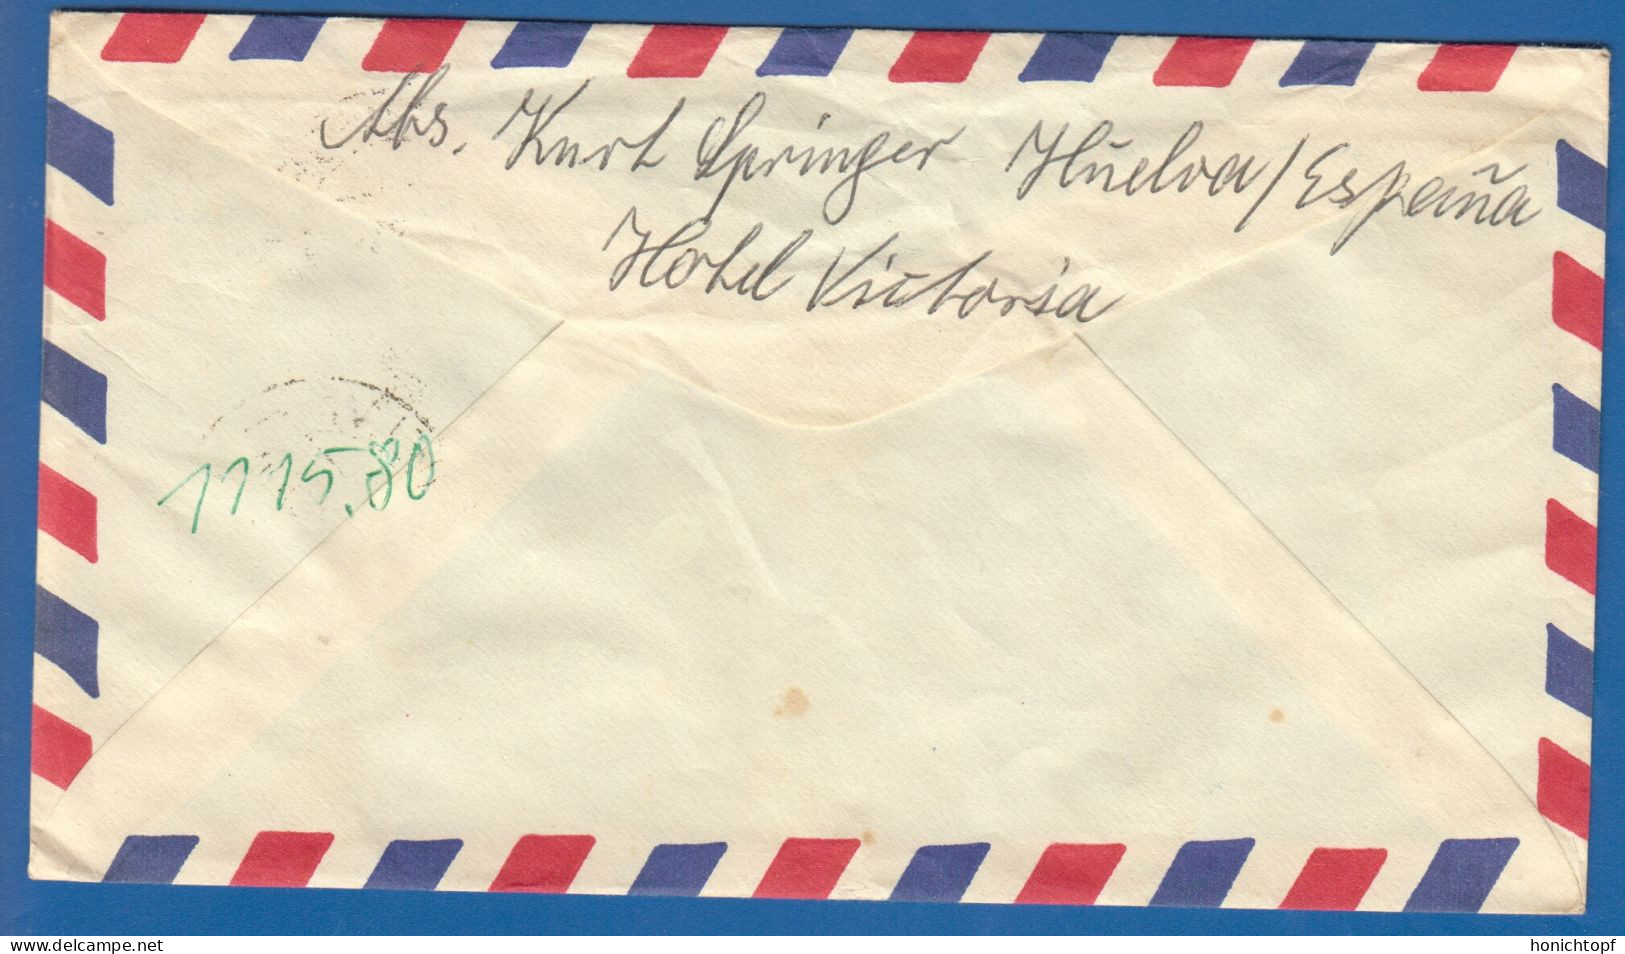 Abs. Kurt Springer Huelva/España
Hotel Victoria
1115.80
www.delcampe.net
honichtopf